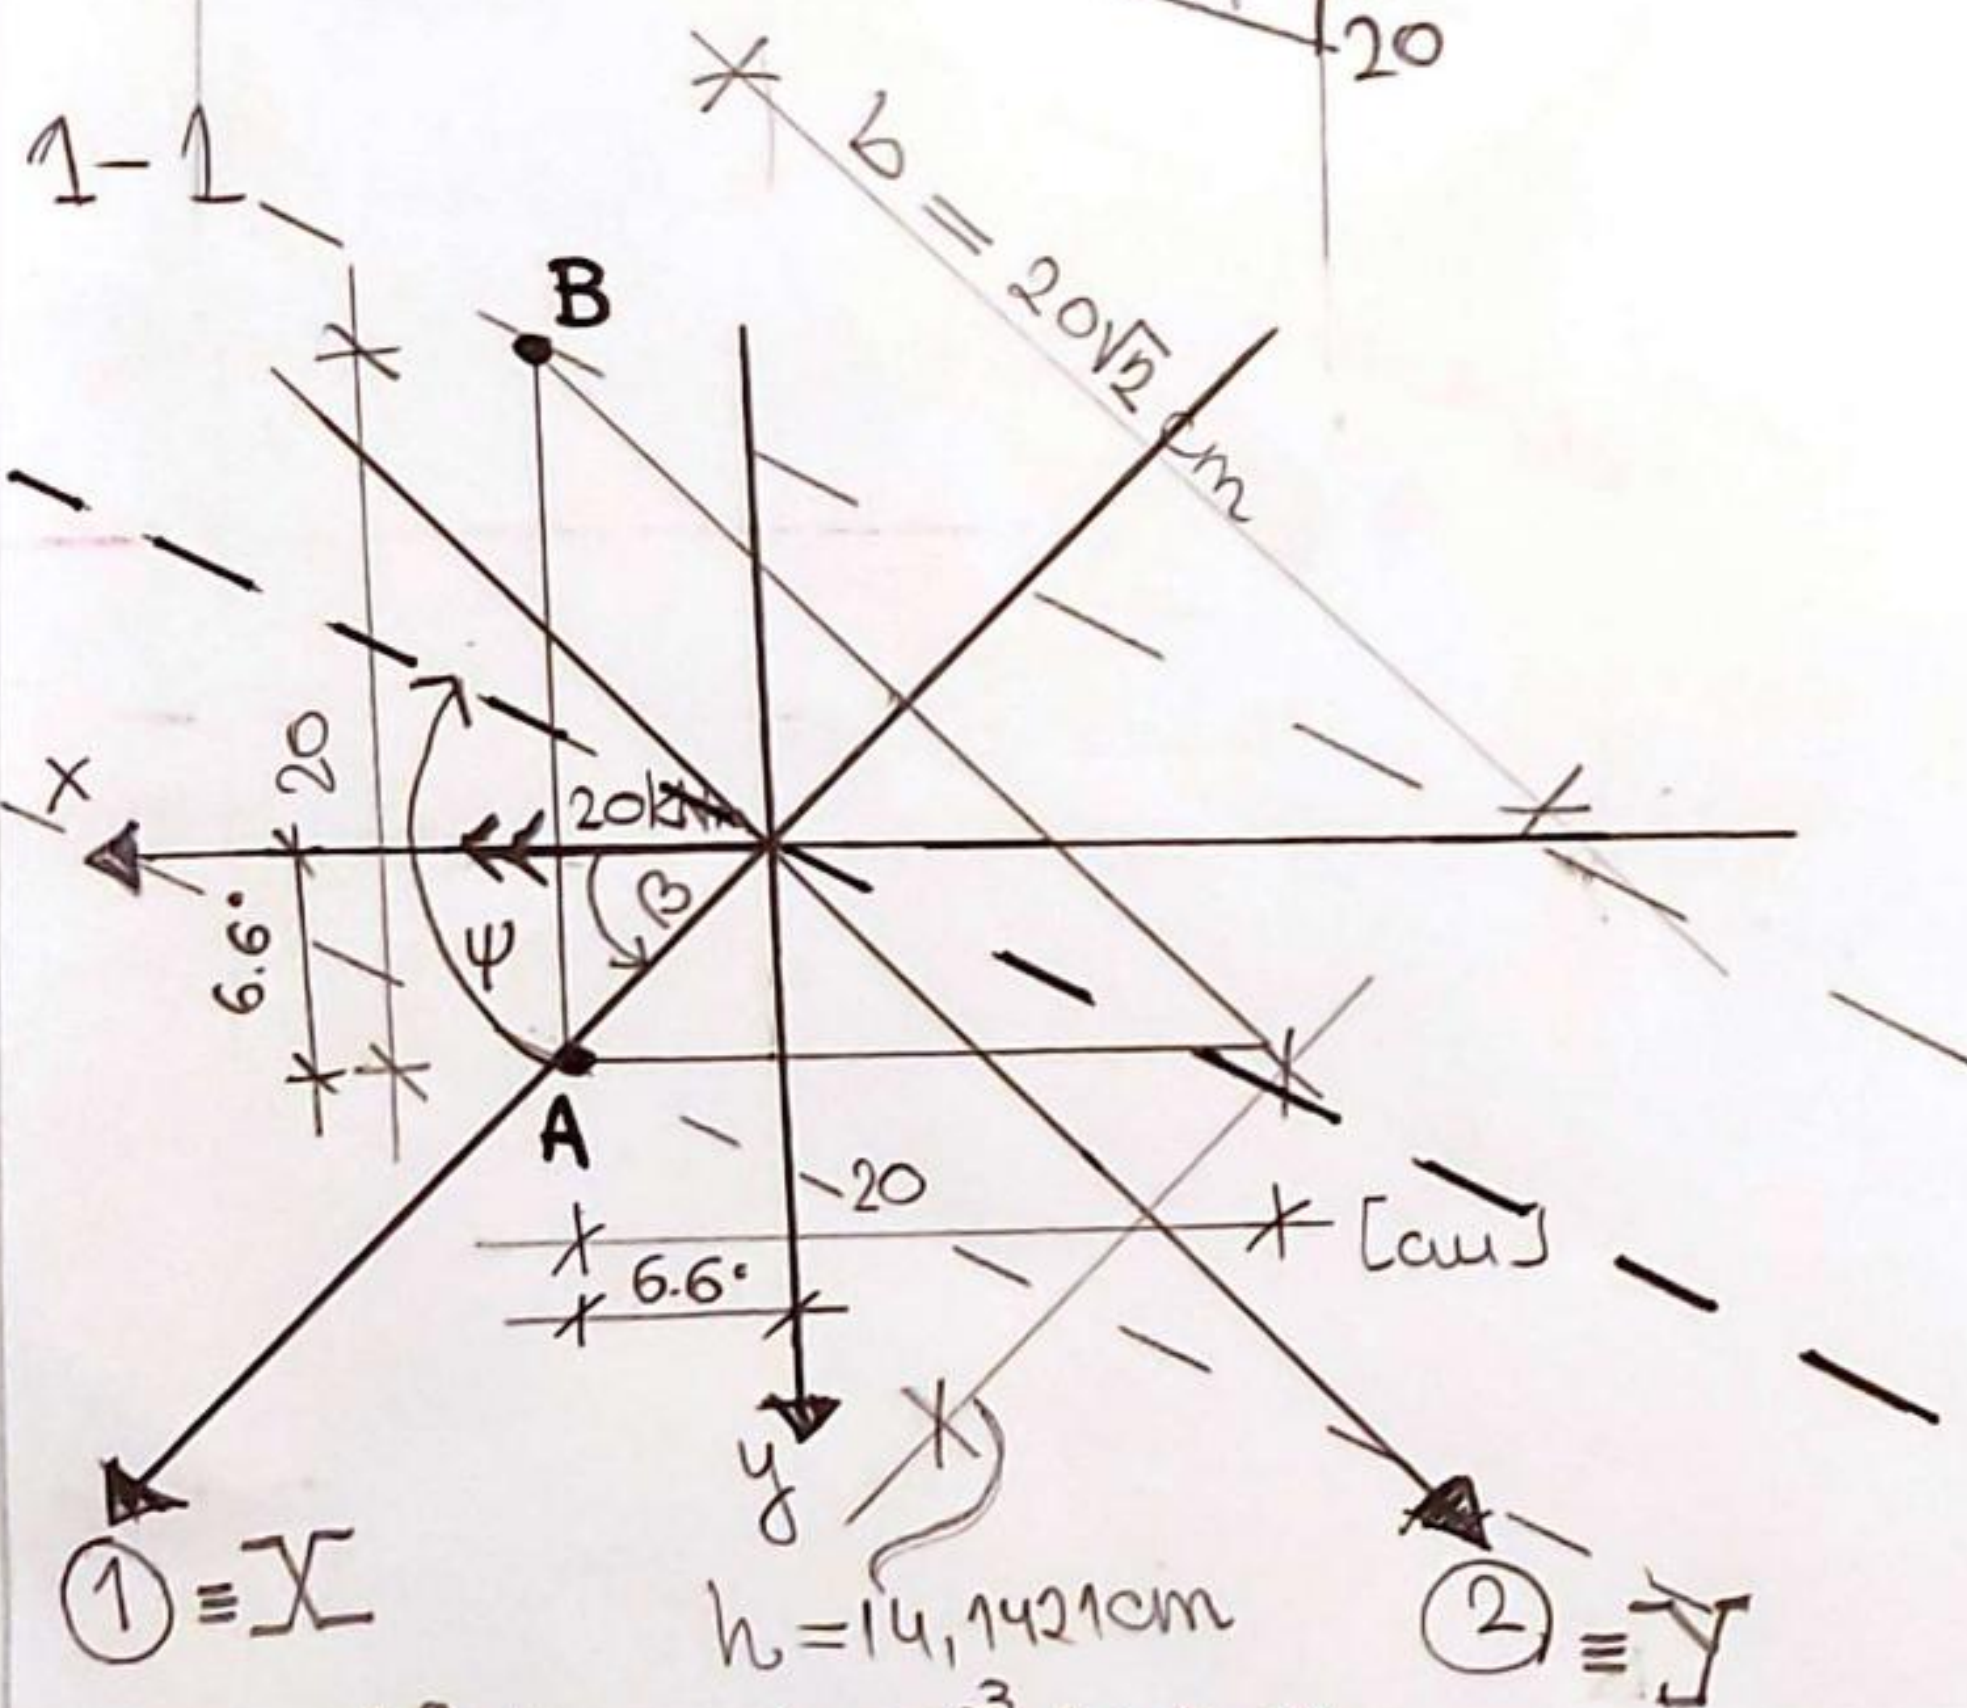 20
1-1
b = 20√2 cm
B
20
x
20kNm
6.6•
β
ψ
A
20
[cm]
6.6•
y
① ≡ X
h=14,1421cm
② ≡ y
3